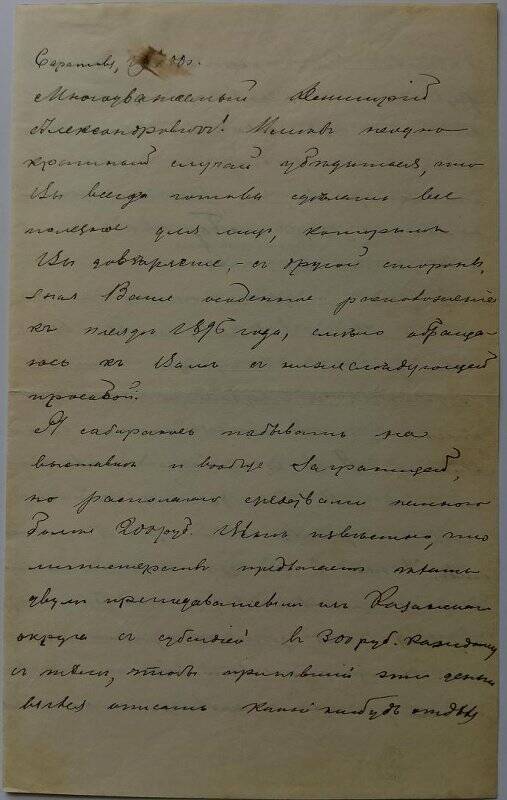 Саратов, 00 г.
Многоуважаемый Дмитрій
Александровичъ! Имѣвъ неодно-
кратный случай убѣдиться, что
Вы всегда готовы сдѣлать все
полезное для лицъ, которымъ
Вы довѣряете, - съ другой стороны,
зная Ваше особенное расположеніе
къ 1896 года, смѣло обраща-
юсь къ Вамъ съ нижеслѣдующей
просьбой.
Я собираюсь побывать на
выставкѣ и вообще заграницей,
но располагаю средствами немного
болѣе 200 руб. Мнѣ извѣстно, что
министерство предлагаетъ ѣхать
двумъ преподавателямъ изъ Казанскаго
округа съ субсидіей въ 300 руб. каждому
съ тѣмъ, чтобы принявшій эти деньги
взялся описать какой нибудь отдѣлъ